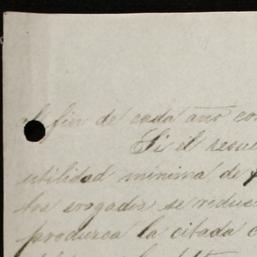 al fin de cada año con
Si el resu
utilidad mínima de
los erogados se reduc
produzca la citada c